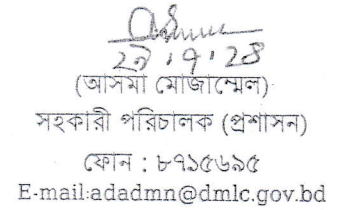 ২৯.৭.২৪
(আসমা মোজাম্মেল)
সহকারী পরিচালক (প্রশাসন)
ফোন : ৮৭১৫৬৯৫
E-mail:adadmn@dmlc.gov.bd